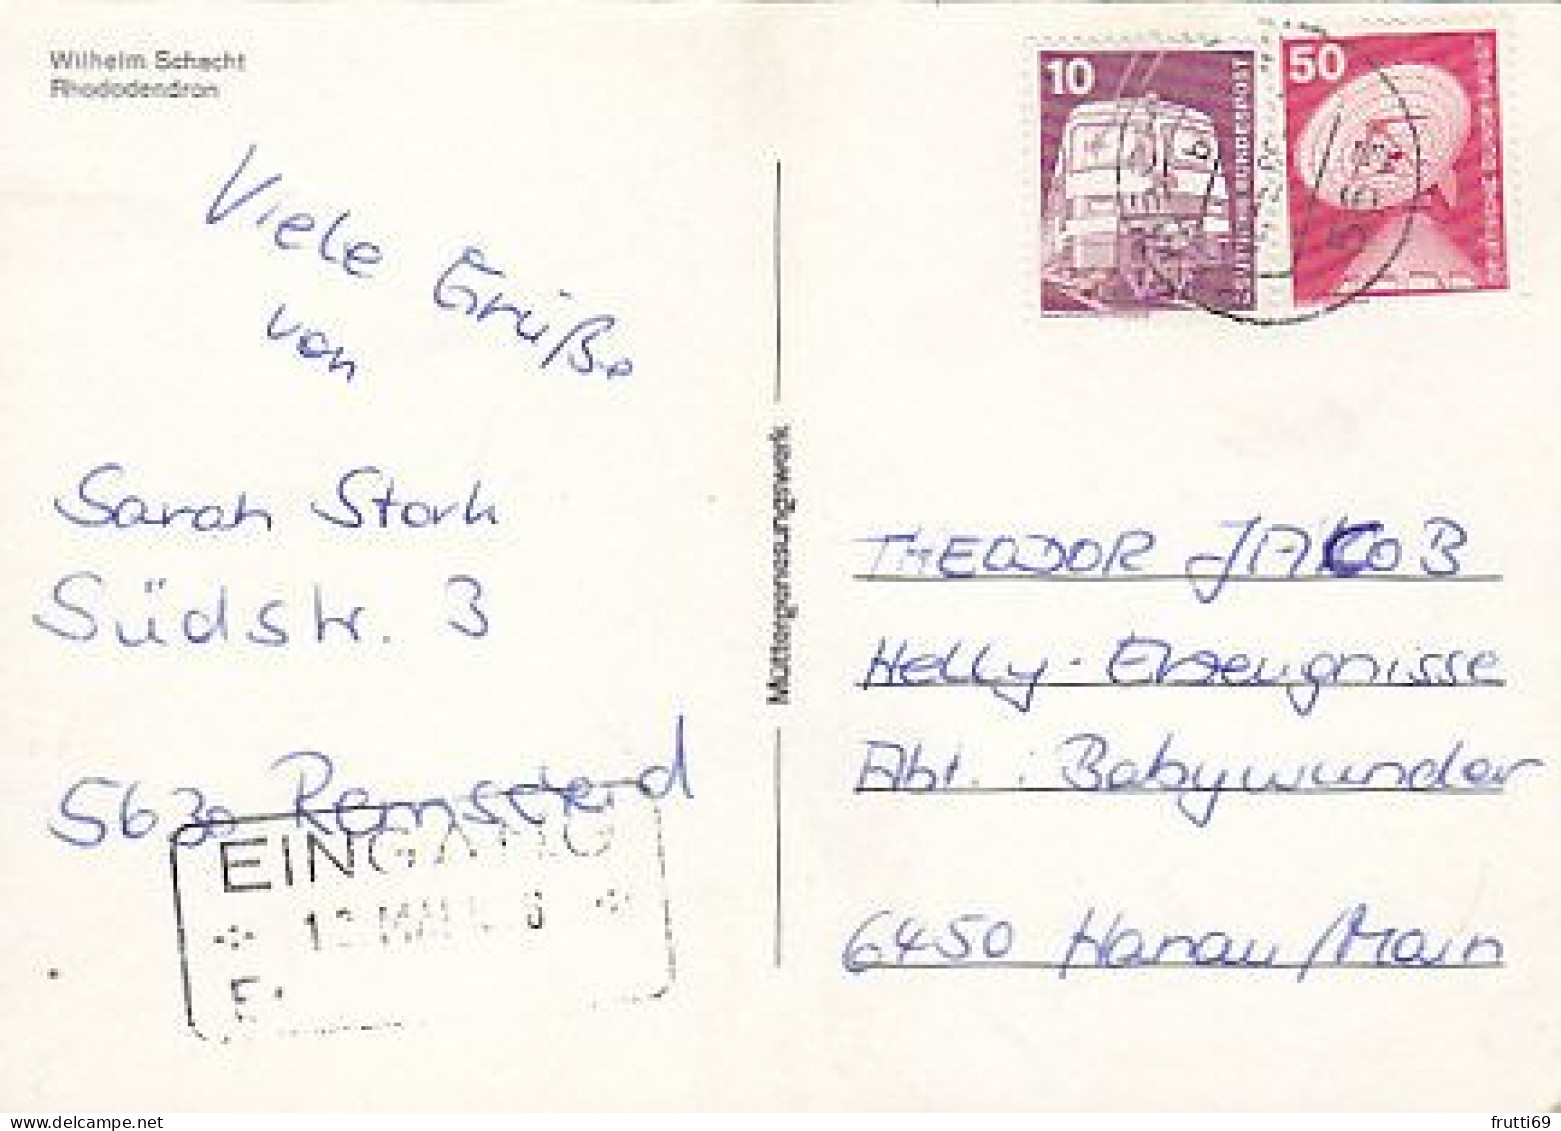 Wilhelm Schacht
Rhododendron
Viele Grüße
von
Sarah Stork
Südstr. 3
5630 Remscheid
EINGANG
Müttergenesungswerk
10
DEUTSCHE BUNDESPOST
50
DEUTSCHE BUNDESPOST
THEODOR JAKOB
Helly-Erzeugnisse
Abt.: Babywunder
6450 Hanau/Main
delcampe.net
frutti69